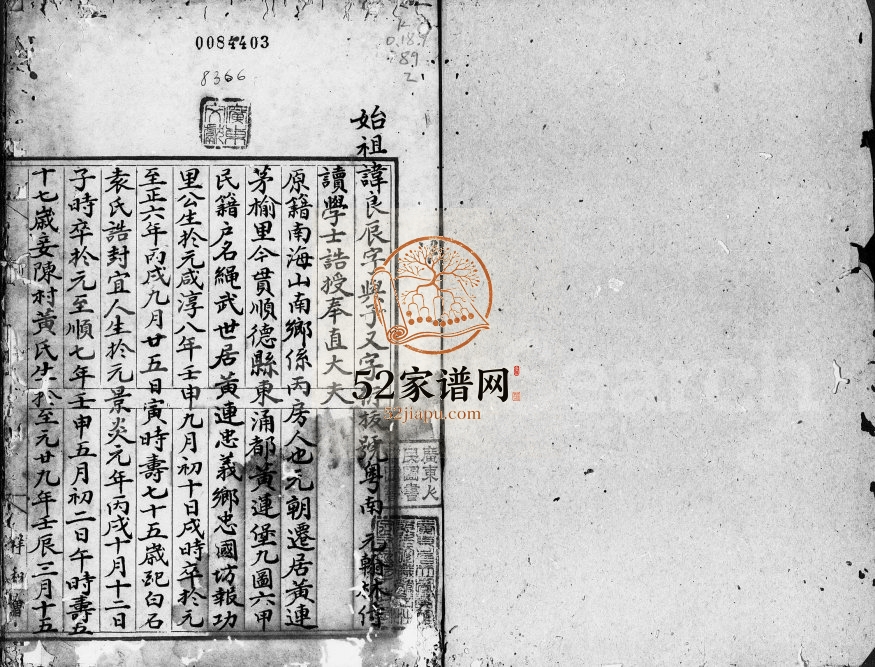 0084403
8366
0.18.9
89
2
廣東文獻
始祖諱良辰字與予又字拔號粤南元翰林侍
讀學士誥授奉直大夫
原籍南海山南鄉係丙房人也元朝遷居黃連
茅榆里今貫順德縣東涌都黃連堡九圖六甲
民籍户名繩武世居黃連忠義鄉忠國坊報功
里公生於元咸淳八年壬申九月初十日戌時卒於元
至正六年丙戌九月廿五日寅時壽七十五歲配白石
袁氏誥封宜人生於元景炎元年丙戌十月十二日
子時卒於元至順七年壬申五月初二日午時壽五
十七歲妾陳村黃氏生於至元廿九年壬辰三月十五
52家谱网
52jiapu.com